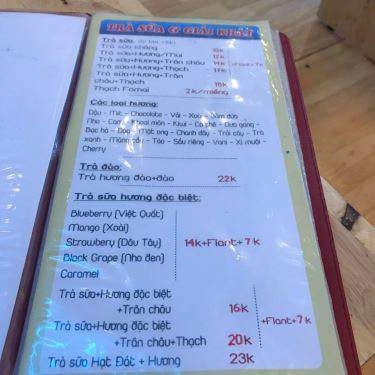 TRÀ SỮA & GIẢI KHÁT
Trà sữa
Trà sữa không 10k
Trà sữa+Hương/Thái 12k
Trà sữa+Hương+Trân châu 14k
Trà sữa+Hương+Thạch 17k
Trà sữa+Hương+Trân
châu+Thạch 18k
Thạch Fomai 2k/miếng
Các loại hương:
Dâu - Mít - Chocolate - Vải - Xoài
Nho - Cam - Khoai môn - Kiwi - Cà phê - Dưa gang -
Bạc hà - Đào - Mật ong - Chanh dây - Trái cây - Trà
xanh - Măng cầu - Táo - Sầu riêng - Vani - Xí muội -
Cherry
Trà đào:
Trà hương đào+đào 22k
Trà sữa hương đặc biệt:
Blueberry (Việt Quất)
Mango (Xoài)
Strawbery (Dâu Tây) 14k+Flant+7k
Black Grape (Nho đen)
Caramel
Trà sữa+Hương đặc biệt
+Trân châu 16k
+Flant+7k
Trà sữa+Hương đặc biệt
+Trân châu+Thạch 20k
Trà sữa Hạt Dát + Hương 23k